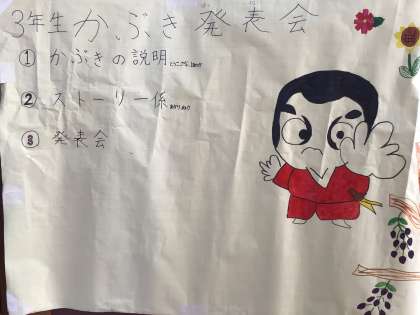 3年生かぶき発表会
① かぶきの説明
② ストーリー係
③ 発表会